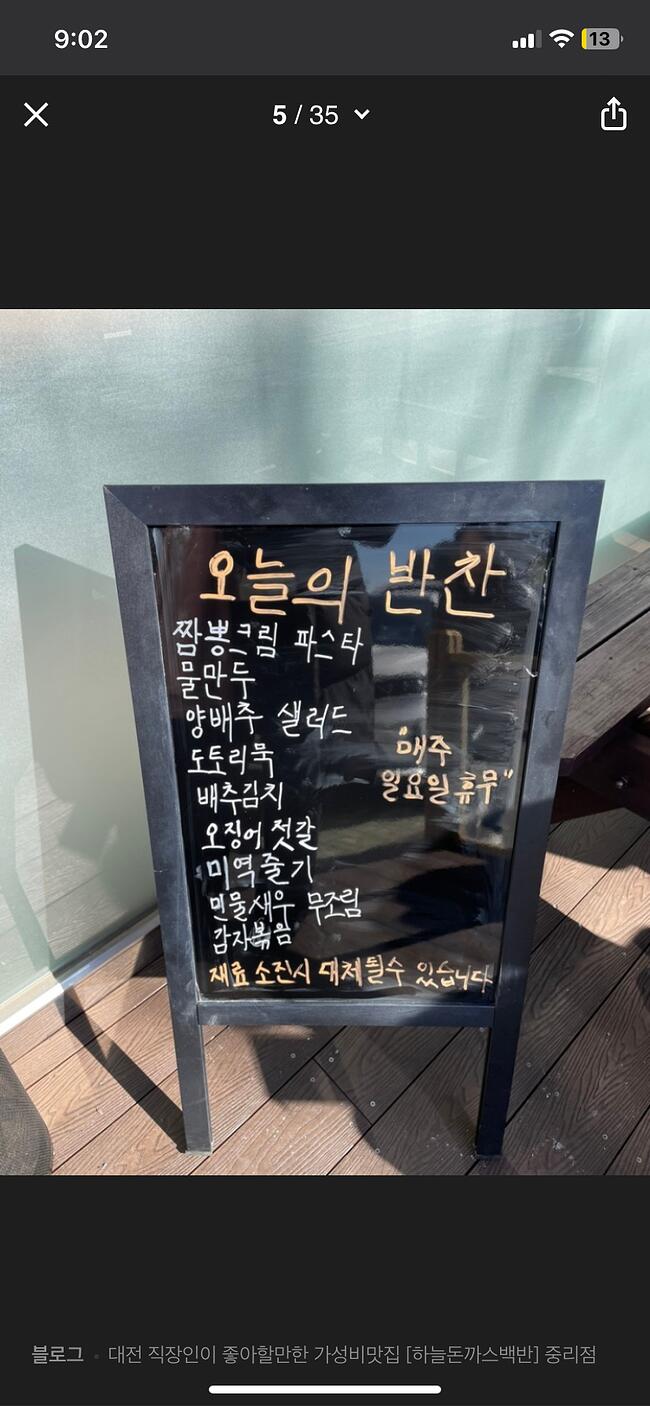 9:02
13
5 / 35
오늘의 반찬
짬뽕크림 파스타
물만두
양배추 샐러드
도토리묵
"매주
일요일 휴무"
배추김치
오징어 젓갈
미역줄기
민물새우 무조림
감자볶음
재료 소진시 대체될수 있습니다
블로그 • 대전 직장인이 좋아할만한 가성비맛집 [하늘돈까스백반] 중리점